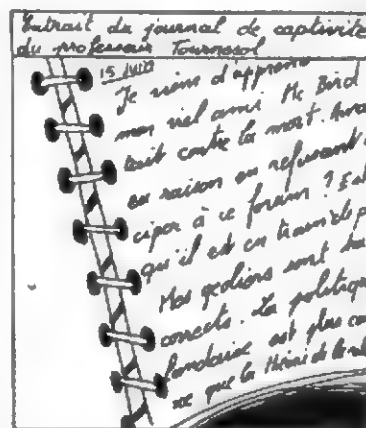 Extrait du journal de captivité
du professeur Tournesol
15 juin
Je viens d'appren
mon vieil ami Mc Bird
tait contre la mort. Avai
eu raison en refusant
ciper à ce forum ? Est
qu'il est en train de p
Mes geôliers sont
corrects. La politique
landaise est plus com
xe que la théorie de